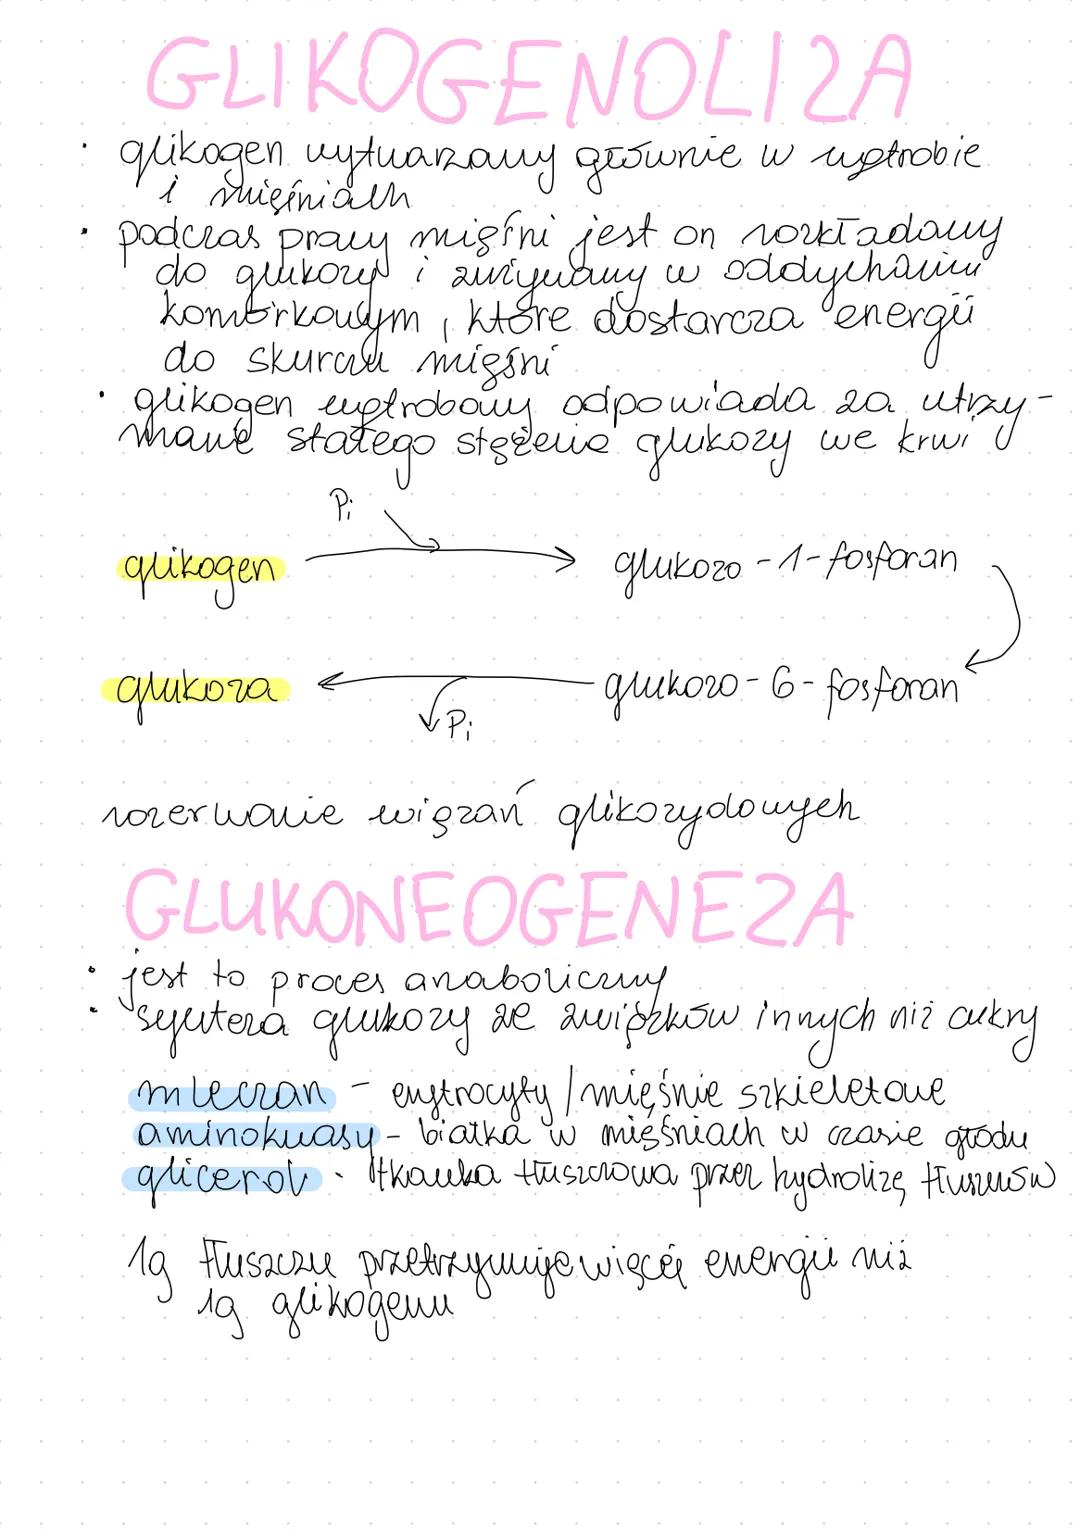 GLIKOGENOLIZA
• glikogen wytwarzany głównie w wątrobie
i mięśniach
• podczas pracy mięśni jest on rozkładany
do glukozy i zużywany w oddychaniu
komórkowym, które dostarcza energii
do skurczu mięśni
• glikogen wątrobowy odpowiada za utrzy-
manie stałego stężenia glukozy we krwi
Pi
glikogen → glukozo-1-fosforan
glukoza ← glukozo-6-fosforan
Pi
rozerwanie wiązań glikozydowych
GLUKONEOGENEZA
• jest to proces anaboliczny
• synteza glukozy ze związków innych niż cukry
mleczan - erytrocyty/mięśnie szkieletowe
aminokwasy - białka w mięśniach w czasie głodu
glicerol - tkanka tłuszczowa przez hydrolizę tłuszczów
1g tłuszczu przetrzymuje więcej energii niż
1g glikogenu